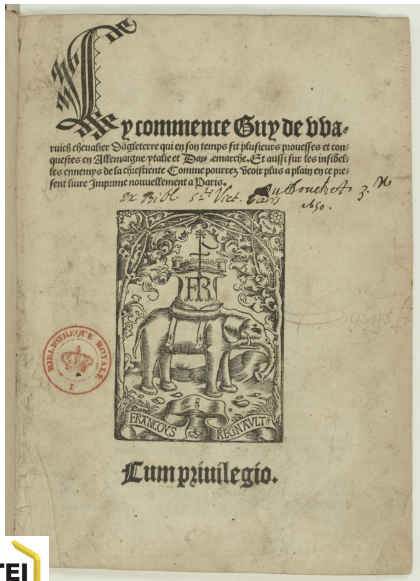 Cy commence Guy de vva⸗
ruich chevalier Dāgleterre qui en son temps fit plusieurs prouesses et con⸗
questes en Allemaigne/ ytalie et Dannemarche. Et aussi sur les infidel⸗
les ennemys de la chrestiente Comme pourrez veoir plus a plain en ce pre⸗
sent livre Imprime nouvellement a Paris.
ex Bibl Sti Vict. Paris
1650.
FR
BIBLIOTHEQUE ROYALE
FRANCOYS REGNAULT
Cum privilegio.
TEI